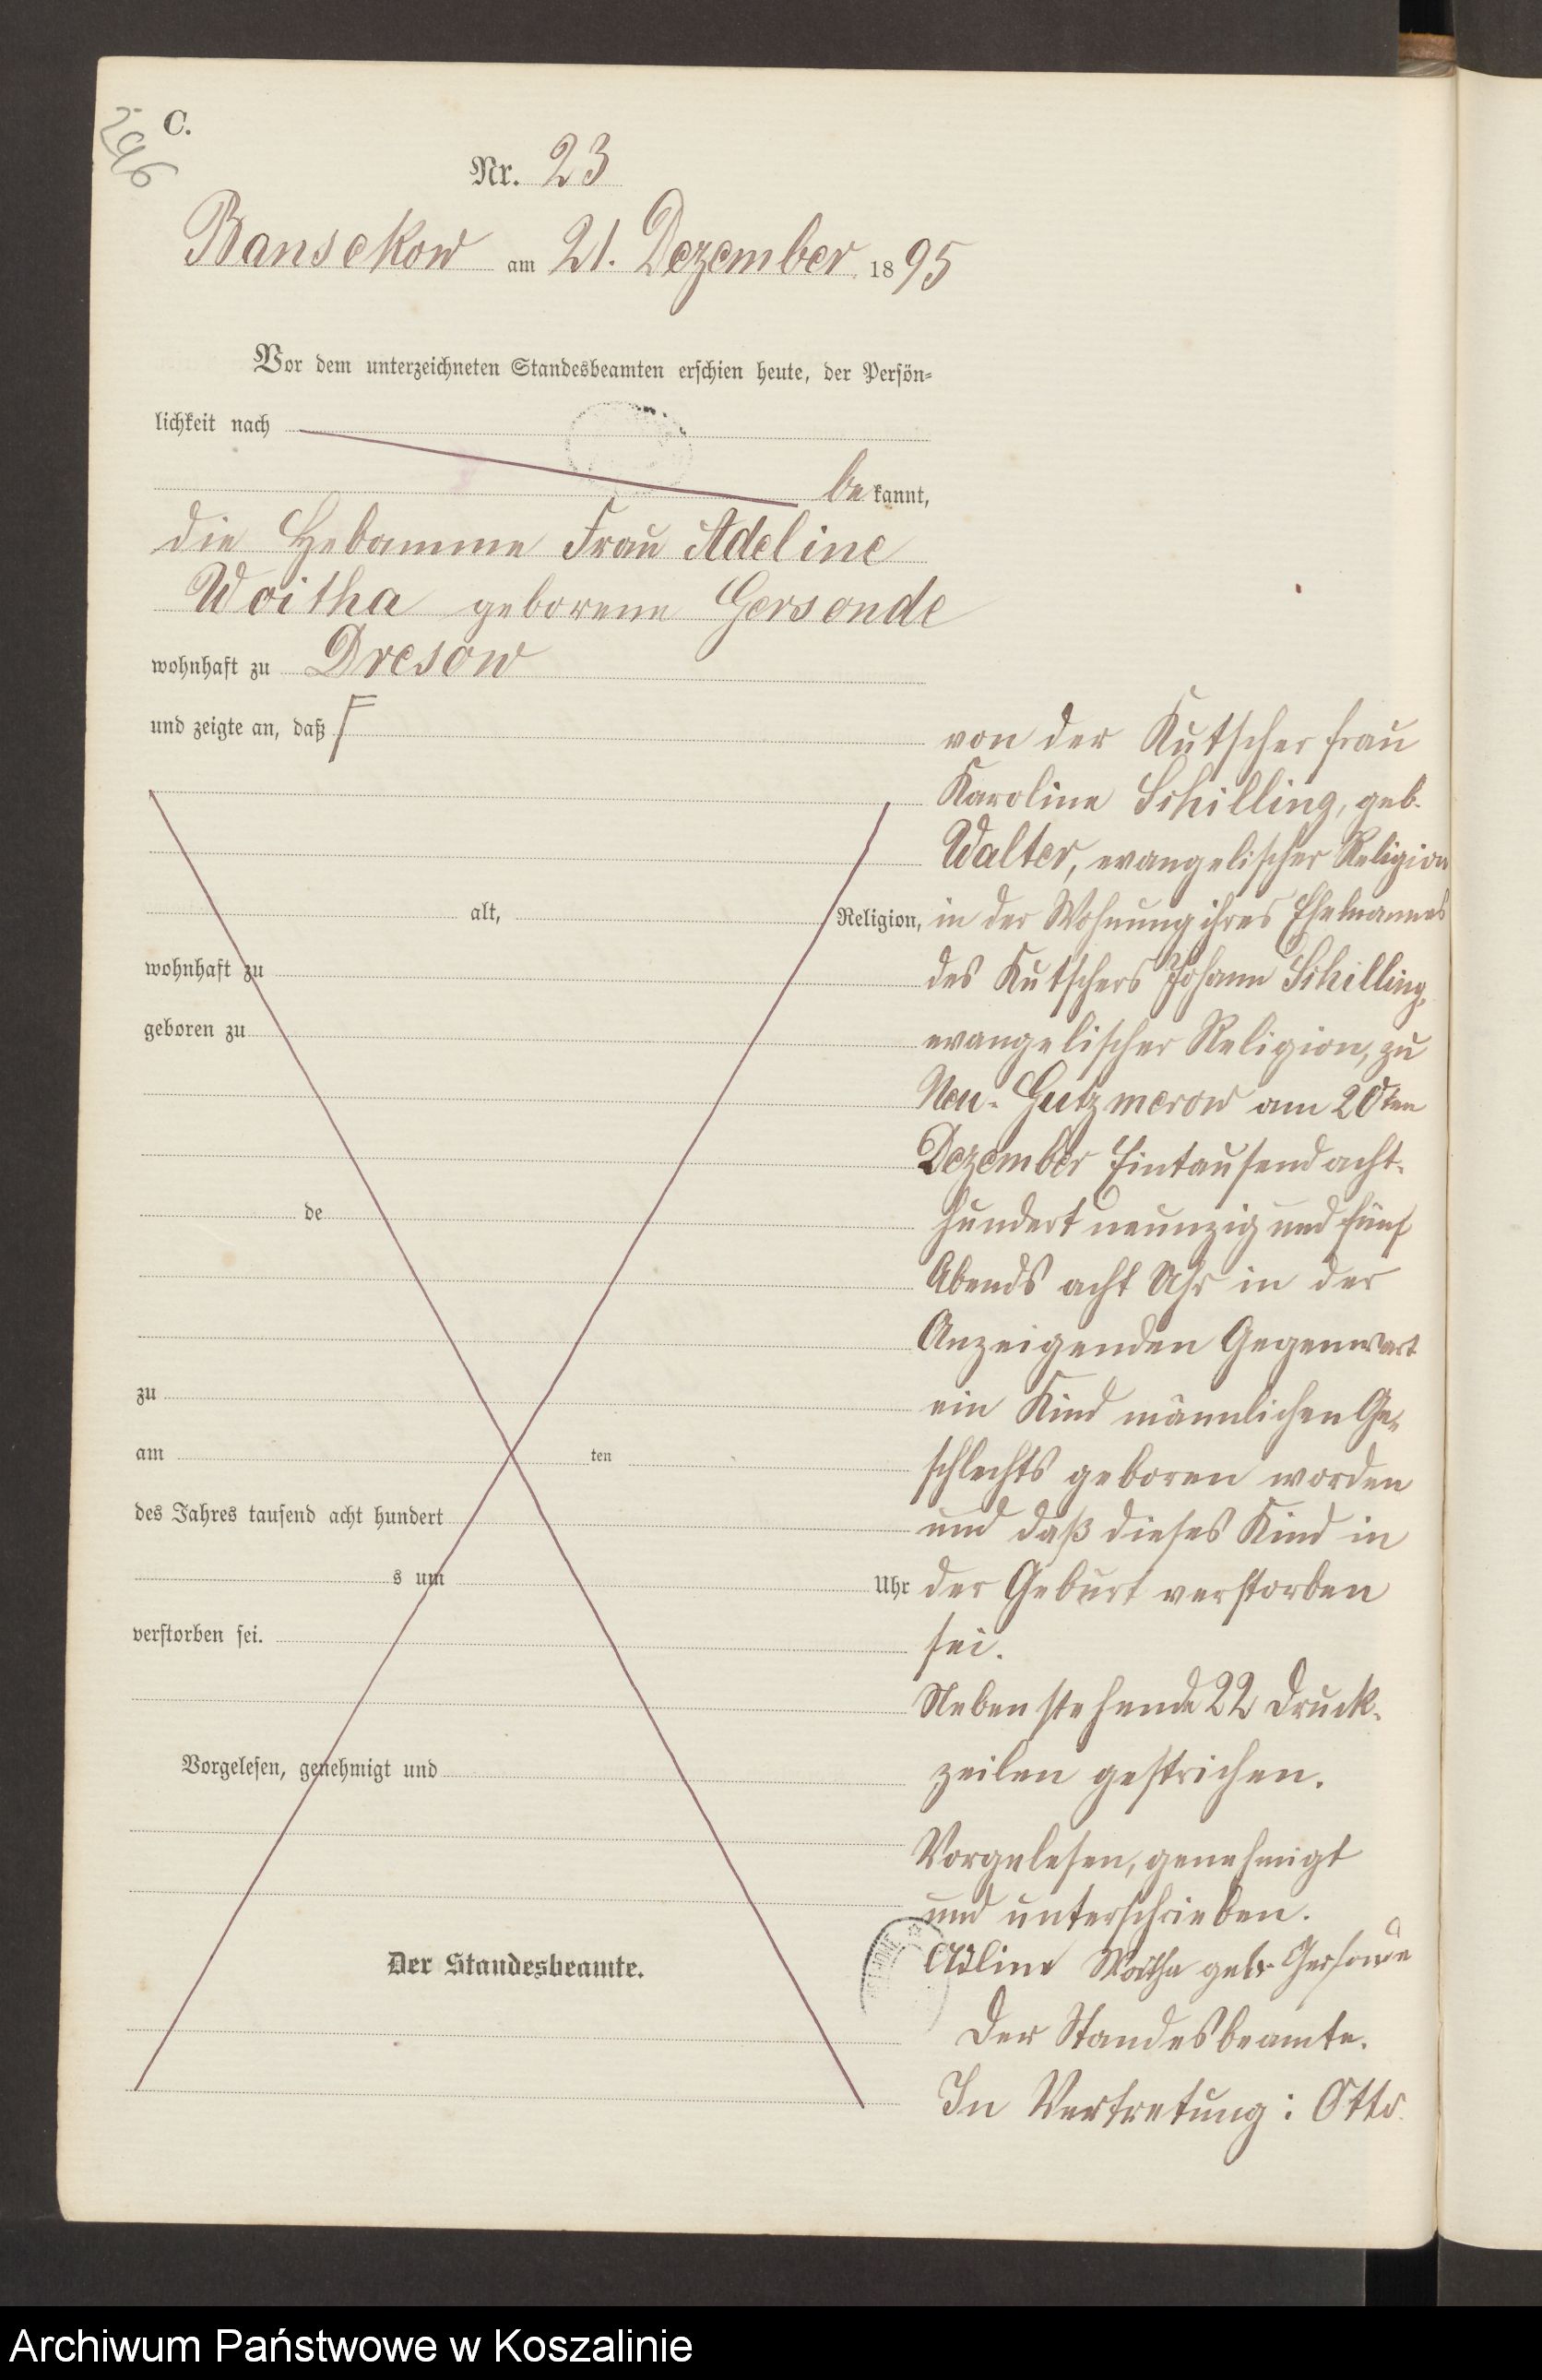 C.
296
Nr. 23
Bansekow am 21. Dezember 1895
Vor dem unterzeichneten Standesbeamten erschien heute, der Persön-
lichkeit nach
be kannt,
die Hebamme Frau Adeline
Woitha geborene Gersonde
wohnhaft zu Dresow
und zeigte an, daß
von der Kutscherfrau
Karoline Schilling, geb.
Walter, evangelischer Religion
alt, Religion, in der Wohnung ihres Ehemannes
wohnhaft zu
des Kutschers Johann Schilling,
geboren zu
evangelischer Religion, zu
Neu-Gutzmerow am 20ten
Dezember Eintausend acht-
de
hundert neunzig und fünf
Abends acht Uhr in der
Anzeigenden Gegenwart
zu
ein Kind männlichen Ge-
am ten
schlechts geboren worden
des Jahres tausend acht hundert
und daß dieses Kind in
s um Uhr der Geburt verstorben
verstorben sei.
sei.
Nebenstehende 22 Druck-
Vorgelesen, genehmigt und
zeilen gestrichen.
Vorgelesen, genehmigt
und unterschrieben.
Der Standesbeamte.
Adline Woitha geb. Gersonde
Der Standesbeamte.
In Vertretung: Otto.
Archiwum Państwowe w Koszalinie